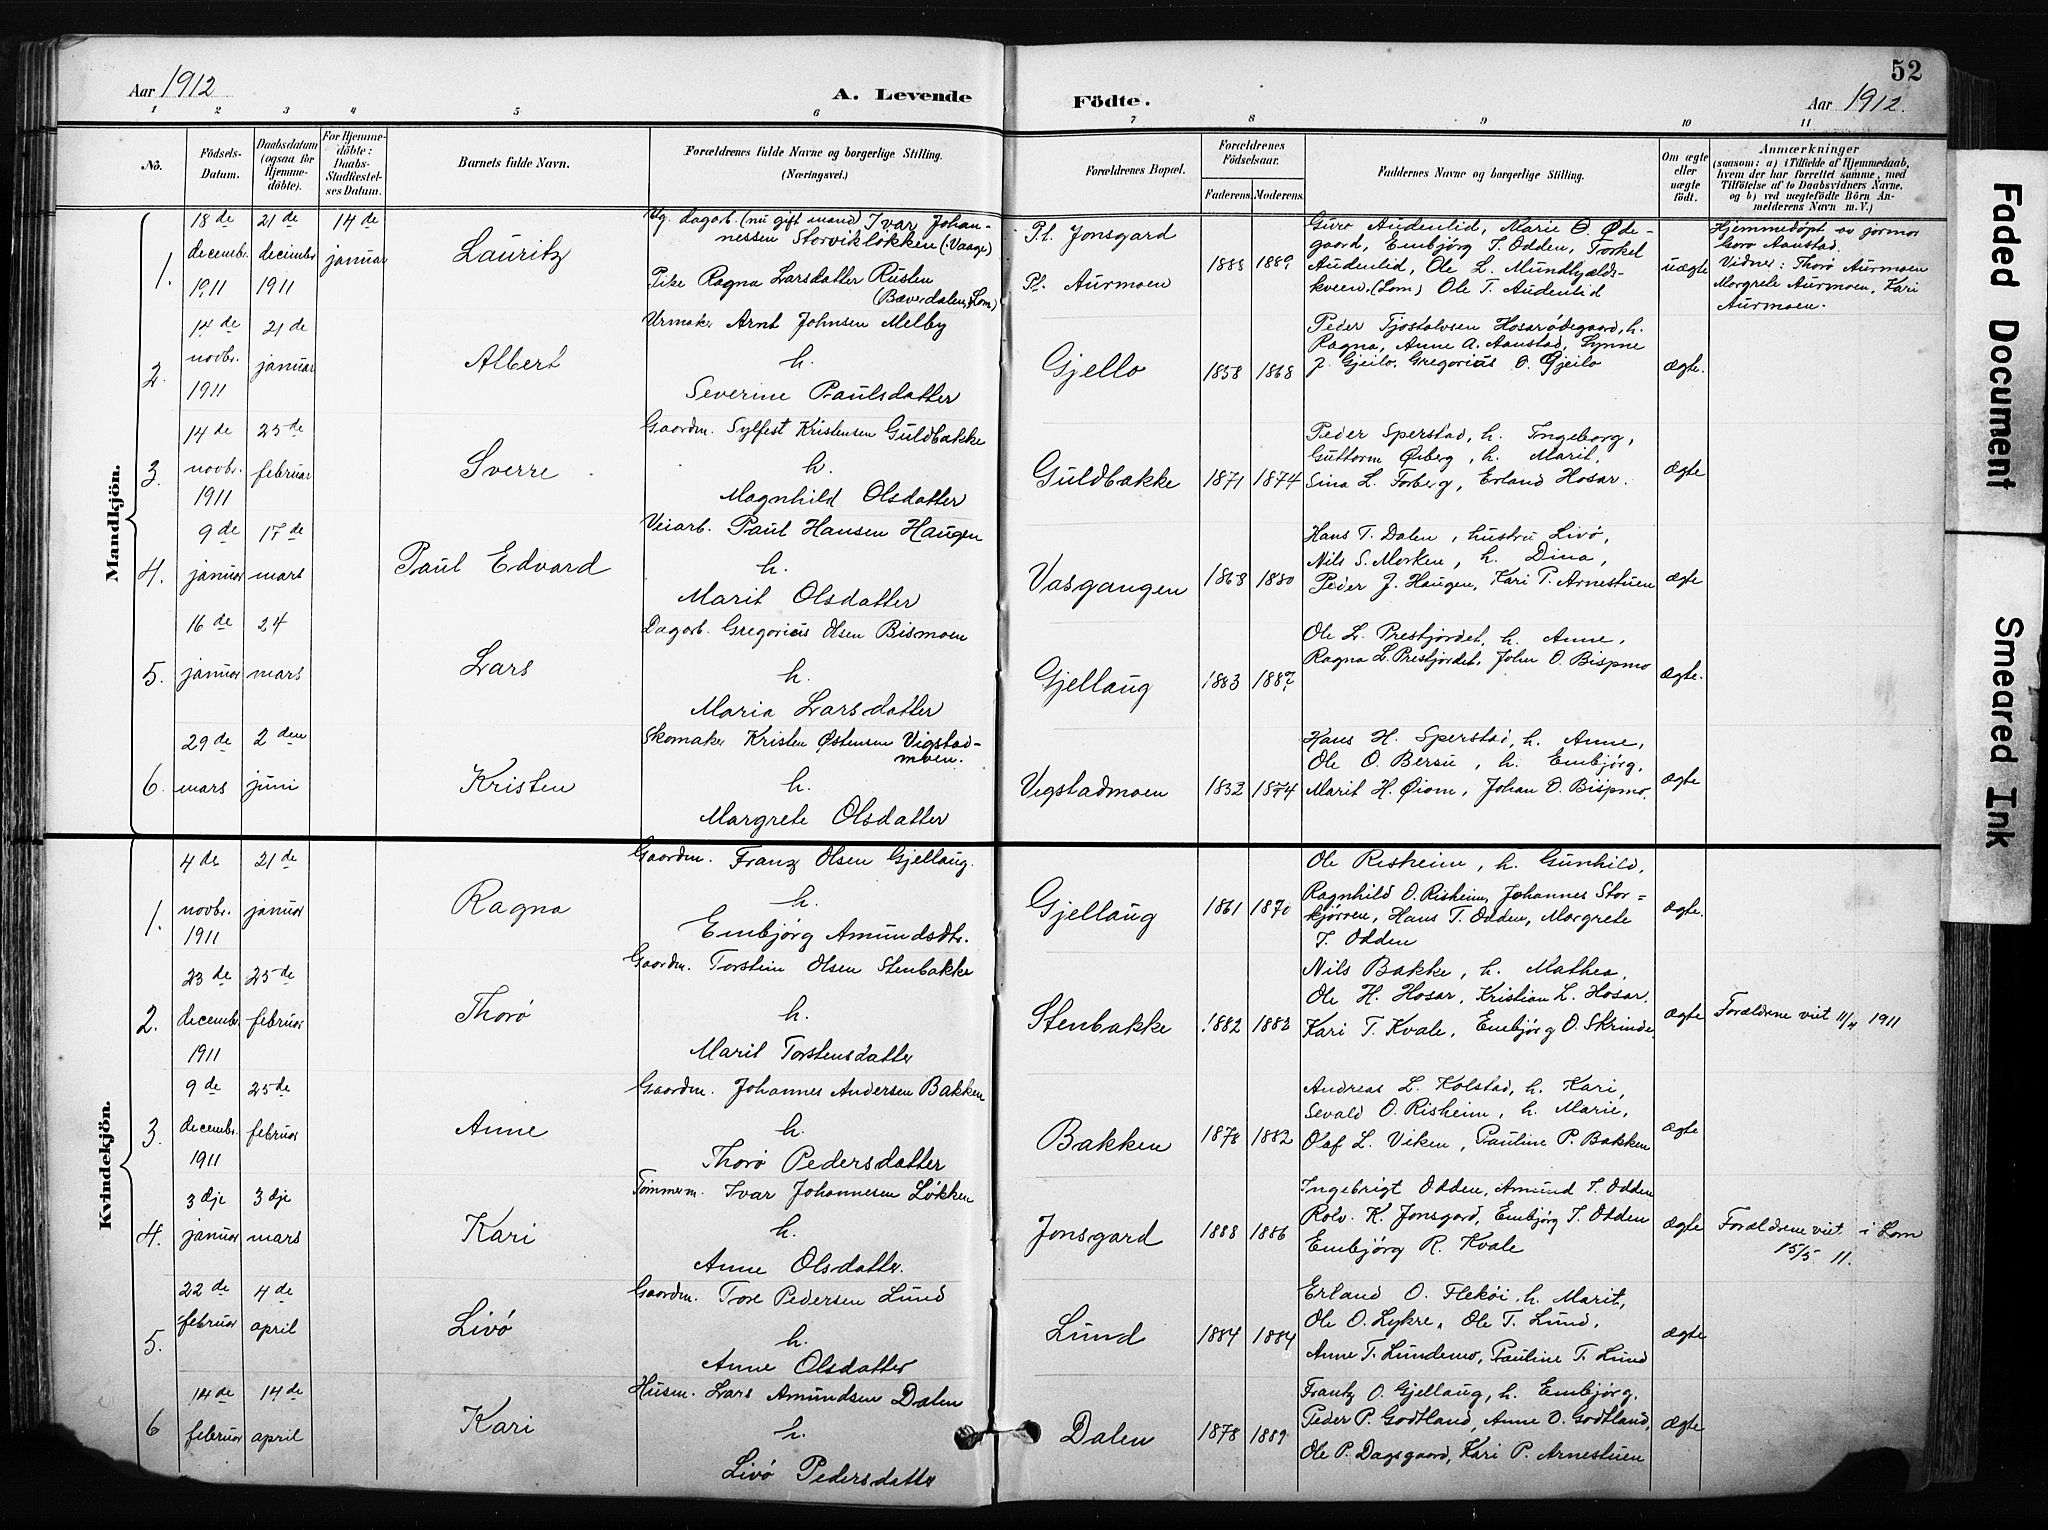 52
Aar 1912
A. Levende
Födte.
Aar 1912.
1 2 3 4 5 6 7 8 9 10 11
No.
Födsels-Datum.
Daabsdatum (ogsaa for Hjemme-döbte).
For Hjemme-döbte: Daabs-Stadfæstel-ses Datum.
Barnets fulde Navn.
Forældrenes fulde Navne og borgerlige Stilling.
(Næringsvei.)
Forældrenes Bopæl.
Forældrenes Födselsaar.
Faderens. Moderens.
Faddernes Navne og borgerlige Stilling.
Om ægte eller uægte födt.
Anmærkninger
(saasom: a) i Tilfælde af Hjemmedaab, hvem der har forrettet samme, med Tilföielse af to Daabsvidners Navne. og b) ved uægtefödte Börn An-melderens Navn m. V.)
Mandkjön.
1. 18de decembr. 1911
21de december 1911
14de januar
Lauritz
Ug. dagarb. (nu gift mand) Ivar Johan-
nessen Storvikløkken (Vaage)
Pike Ragna Larsdatter Rusten
(Bæverdalen, Lom)
P.t. Jonsgard
Pt. Aurmoen
1888 1889
Guro Audenlid, Marie O. Øde-
gaard, Embjörg T. Odden, Torkel
Audenlid, Ole L. Mundhjælds-
kveen (Lom) Ole T. Audenlid
uægte
Hjemmedöpt av jormor
Goro Aanstad.
Vidner: Thorø Aurmoen
Margrete Aurmoen, Kari
Aurmoen.
2. 14de novbr. 1911
21de januar
Albert
Urmaker Arnt Johnsen Melby
h.
Severine Paulsdatter
Gjello
1858 1868
Peder Tjostolvsen Hosarødegaard, h.
Ragna, Anne A. Aanstad, Synne
J. Gjeilo, Gregorius O. Gjeilo
ægte.
3. 14de novbr. 1911
25de februar
Sverre
Gaardm. Sylfest Kristensen Guldbakke
h.
Magnhild Olsdatter
Guldbakke
1871 1874
Peder Sperstad, h. Ingeborg,
Guttorm Øiberg, h. Marit,
Sina L. Forberg, Erland Hosar.
ægte
4. 9de januar
17de mars
Paul Edvard
Veiarb. Paul Hansen Haugen
h.
Marit Olsdatter
Vasgangen
1868 1880
Hans T. Dalen, hustru Livø,
Nils S. Morken, h. Dina,
Peder J. Haugen, Kari P. Arnestuen
ægte
5. 16de januar
24 mars
Lars
Dagarb. Gregorius Olsen Bismoen
h.
Maria Larsdatter
Gjellaug
1883 1887
Ole L. Prestjordet, h. Anne,
Ragna L. Prestjordet, John O. Bispmo
ægte.
6. 29de mars
2den juni
Kristen
Skomaker Kristen Østensen Vigstad-
moen.
h.
Margrete Olsdatter
Vigstadmoen
1832 1874
Hans H. Sperstad, h. Anne,
Ole O. Bersu, h. Embjørg,
Marit H. Øiom, Johan O. Bispmo.
ægte
Kvindekjön.
1. 4de novbr. 1911
21de januar
Ragna
Gaardm. Franz Olsen Gjellaug.
h.
Embjørg Amundsdtr.
Gjellaug
1861 1870
Ole Risheim, h. Gunhild,
Ragnhild O. Risheim, Johannes Stor-
kjørren, Hans T. Odden, Margrete
T. Odden
ægte.
2. 23de decembr. 1911
25de februar
Thorø
Gaardm. Torstein Olsen Stenbakke
h.
Marit Torstensdatter
Stenbakke
1882 1883
Nils Bakke, h. Mathea,
Ole H. Hosar, Kristian L. Hosar.
Kari T. Kvale, Embjørg O. Skrinde,
ægte
Forældrene viet 11/4 1911
3. 9de decembr. 1911
25de februar
Anne
Gaardm. Johannes Andersen Bakken
h.
Thorø Pedersdatter
Bakken
1878 1882
Andreas L. Kolstad, h. Kari,
Sevald O. Risheim, h. Marie,
Olaf L. Viken, Pauline P. Bakken
ægte
4. 3dje januar
3dje mars
Kari
Tømmerm. Ivar Johannesen Løkken
h.
Anne Olsdatter.
Jonsgard
1888 1886
Ingebrigt Odden, Amund T. Odden
Rolv. K. Jonsgard, Embjørg T. Odden
Embjørg R. Kvale
ægte
Forældrene viet i Lom
15/5 11.
5. 22de februar
4de april
Livø
Gaardm. Tore Pedersen Lund
h.
Anne Olsdatter
Lund
1884 1884
Erland O. Flekøi, h. Marit,
Ole O. Lykre, Ole T. Lund,
Anne T. Lundemo, Pauline T. Lund
ægte
6 14de februar
14de april
Kari
Husm. Lars Amundsen Dalen
h.
Livø Pedersdatter
Dalen
1878 1889
Frantz O. Gjellaug, h. Embjørg,
Peder P. Godtland, Anne O. Godtland,
Ole P. Dagsgaard, Kari P. Arnestuen
ægte
Faded Document
Smeared Ink